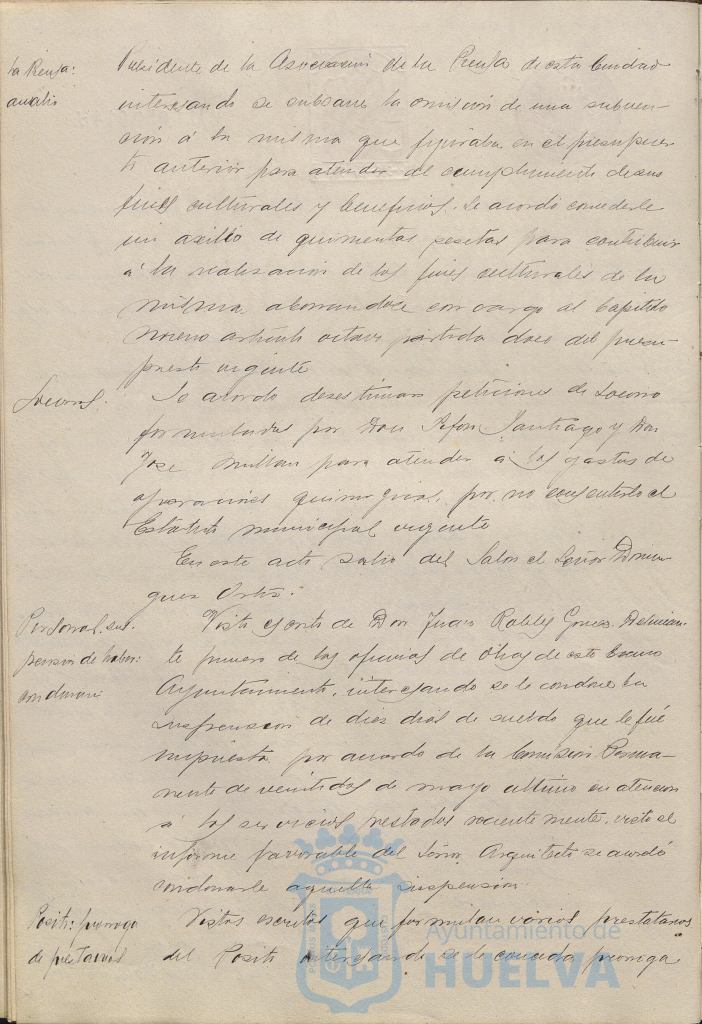 la Prensa: Presidente de la Asociación de la Prensa de esta Ciudad
auxilio interesando se subsane la omisión de una subven-
ción á la misma que figuraba en el presupues-
to anterior para atender al cumplimiento de sus
fines culturales y beneficios. Se acordó concederle
un axilio de quinientas pesetas para contribuir
á la realización de los fines culturales de la
misma abonandose con cargo al Capitulo
noveno articulo octavo partida doce del presu-
puesto vigente
Socorros. Se acordo desestimar peticiones de Socorro
formuladas por Don Santiago y Don
Jose Millan para atender á los gastos de
operaciones quirurgicas, por no consentirlo el
Estatuto municipal vigente
En este acto salio del Salon el Señor Domin-
guez Ortiz.
Personal. sus- Visto escrito de Don Juan Robles Gomez Delinean-
pension de haber: te primero de las oficinas de Obras de este Excmo
condonan Ayuntamiento, interesando se le condone la
suspension de diez dias de sueldo que le fué
impuesta por acuerdo de la Comisión Perma-
nente de veintidos de mayo ultimo en atencion
á los servicios prestados recientemente, visto el
informe favorable del Señor Arquitecto se acordó
condonarle aquella suspension.
Posito: prorroga Vistos escritos que formulan varios prestatarios
de prestamos del Posito interesando se le conceda prorroga
Ayuntamiento de
HUELVA